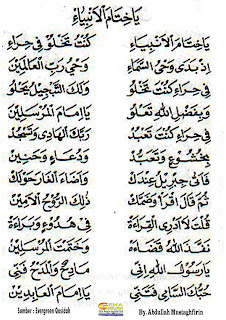 يَاخِتَامَ الْاَنْبِيَاءِ
يَاخِتَامَ الْاَنْبِيَاءِ كُنْتَ تَخْلُوْ فِى حِرَاءِ
اِذْ بَدَى وَحْيُ السَّمَاءِ وَحْيُ رَبِّ الْعَالَمِيْنَ
فِى حِرَاءِ كُنْتَ تَخْلُوْ وَلَكَ التَّبْجِيْلُ يَحْلُوْ
وَبِفَضْلِ اللهِ تَعْلُوْ يَااِمَامَ الْمُرْسَلِيْنَ
فِى حِرَاءِ كُنْتَ تَعْبُدْ رَبَّكَ الْهَادِى وَتَسْجُدْ
بِخُشُوْعٍ وَتَعَبُّدْ وَدُعَاءٍ وَحَنِيْنِ
فَاَتَى جِبْرِيْلُ عِنْدَكَ وَاَضَاءَ الْغَارَ حَوْلَكَ
ثُمَّ قَالَ اقْرَأْ وَضَمَّكَ ذٰلِكَ الرُّوْحُ الْاَمِيْنُ
قُلْتَ لَا اَدْرِى الْقِرَاءَةْ فِى هُدُوْءٍ وَبَرَاءَةْ
نَفَّذَ اللهُ قَضَاءَهْ وَخَتَمْتَ الْمُرْسَلِيْنَ
يَارَسُوْلَ اللهِ اِنِّى مَادِحٌ وَالْمَدْحُ فَنِّى
حُبُّكَ السَّامِى فَتَنِّى يَااِمَامَ الْعَابِدِيْنَ
Sumber : Evergreen Qasidah
By. Abdullah Mustaghfirin